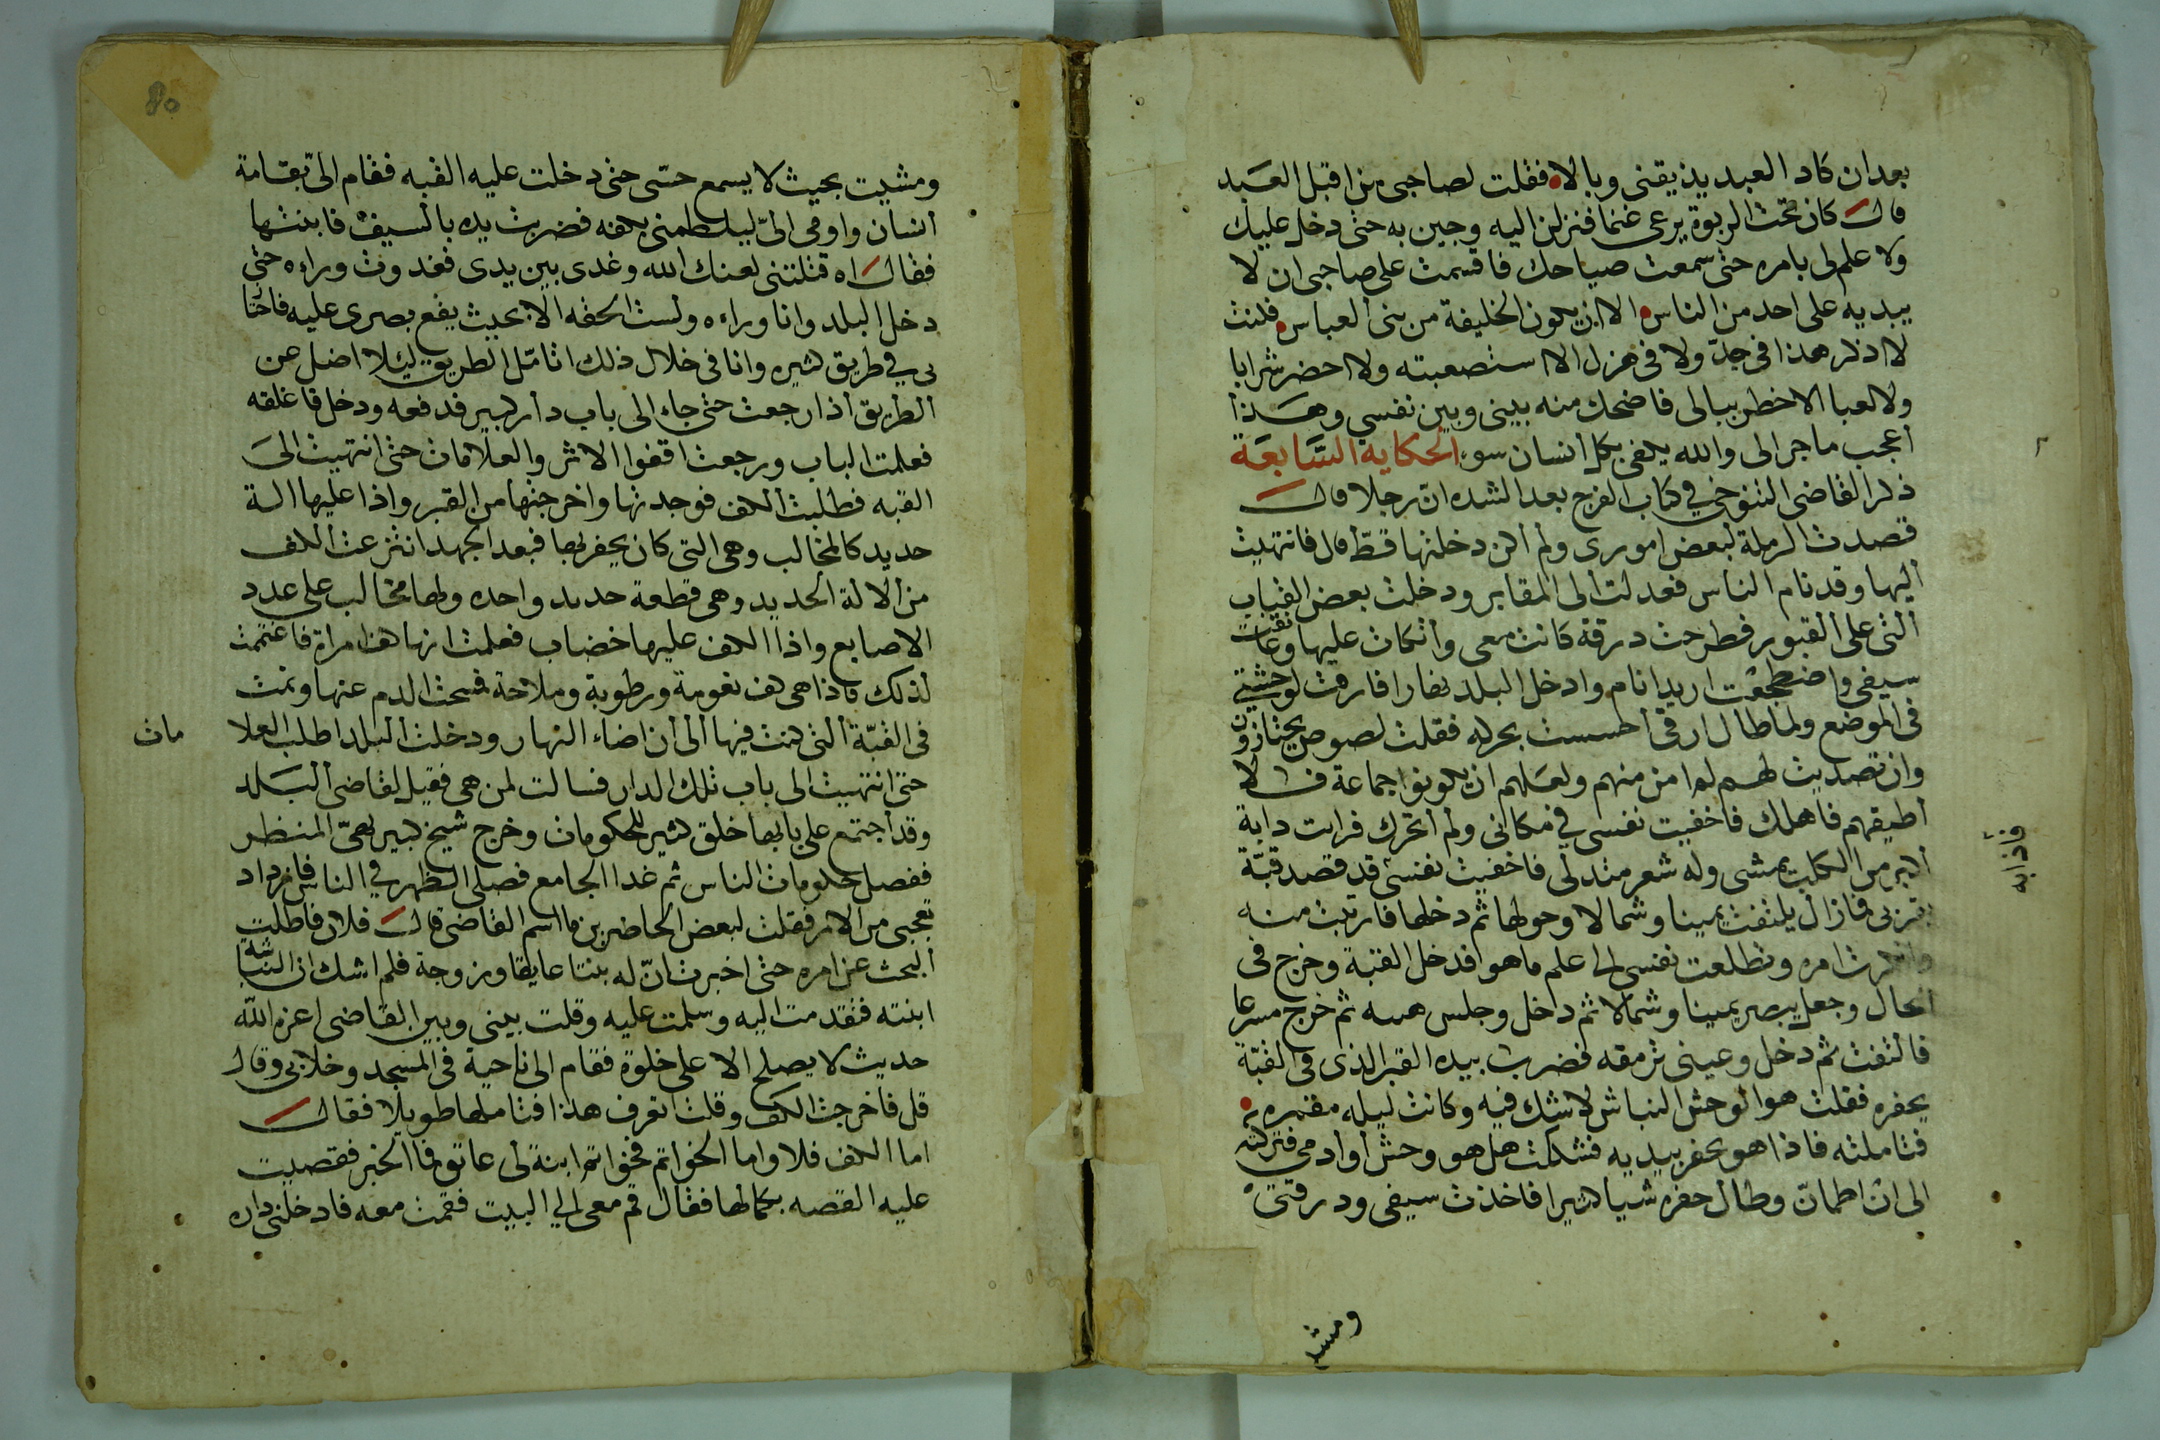 بعد ان كاد العبد يذيقني وبالاه فقلت لصاحبي من اقبل العبد
قال كان تحت الربوة يرعى غنما فنزلن اليه وجين به حتى دخل عليك
ولا علم لي بامره حتى سمعت صياحك فاقسمت على صاحبي ان لا
يبديه على احد من الناس الا ان يكون الخليفة من بني العباس فلنت
لا اذكر هذا في جد ولا في هزل الا استصعبته ولا احضر شرابا
ولا لعبا الا خطر ببالي فاضحك منه بيني وبين نفسي وهذا
أعجب ما جرا لي والله يكفي بكل انسان سوء الحكاية السابعة
ذكر القاضي التنوخي في كتاب الفرج بعد الشده ان رجلا قال
قصدت الرملة لبعض اموري ولم اكن دخلتها قط قال فانتهيت
أليها وقد نام الناس فعدلت الى المقابر ودخلت بعض القباب
ألتي على القبور فطرحت درقة كانت معي وأتكات عليها وعانقت
سيفي واضطجعت اريد انام وادخل البلد نهارا فارقت لوحشتي
في الموضع ولما طال ارقي أحسست بحركه فقلت لصوص يجتازون
وان تصديت لهم لم امن منهم ولعلهم ان يكونوا جماعة فلا
أطيقهم فاهلك فاخفيت نفسي في مكاني ولم اتحرك فرايت دابة
فاذابه
أكبر من الكلب يمشي وله شعر مندلي فاخفيت نفسي قد قصد قبة
بقربي فما زال يلتفت يمينا وشمالا وحولها ثم دخلها فارتبت منه
وانكرت امره وتطلعت نفسي الى علم ما هو فدخل القبة وخرج في
الحال وجعل يبصر يمينا وشمالا ثم دخل وجلس هنيه ثم خرج مسرعا
فالتفت ثم دخل وعيني ترمقه فضرب بيده القبر الذي في القبة
يحفره فقلت هو الوحش النباش لا شك فيه وكانت ليله مقمره
فتاملته فاذا هو يحفر بيديه فشككت هل هو وحش أو ادمي فتركته
الى ان اطمان وطال حفره شيا كثيرا فاخذت سيفي ودرقتي
ومشيت
80
ومشيت بحيث لا يسمع حسي حتى دخلت عليه القبه فقام الي بقامة
أنسان واومى الي ليلطمني بكفه فضربت يده بالسيف فابنتها
فقال اه قتلتني لعنك الله وغدى بين يدي فغدوت وراءه حتى
دخل البلد وانا وراءه ولست الحقه الا بحيث يقع بصري عليه فاجتا
بي في طريق كثيره وانا في خلال ذلك اتامل الطريق ليلا اضل عن
الطريق أذا رجعت حتى جاء الى باب دار كبير فدفعه ودخل فاغلقه
فعلمت الباب ورجعت اقفوا الاثر والعلامات حتى انتهيت الى
القبه فطلبت الكف فوجدتها واخرجتها من القبر واذا عليها الة
حديد كالمخالب وهي التي كان يحفر بها فبعد الجهد انتزعت الكف
من الالة الحديد وهي قطعة حديد واحده ولها مخالب على عدد
الاصابع واذا الكف عليها خضاب فعلمت انها كف امراة فاغتممت
لذلك فاذا هي كف نعومة ورطوبة وملاحة فمسحت الدم عنها ونمت
في القبة ألتي كنت فيها ألى أن اضاء النهار ودخلت البلد اطلب العلا
مات
حتى انتهيت الى باب تلك الدار فسالت لمن هي فقيل لقاضي البلد
وقد أجتمع على بابها خلق كثير للحكومات وخرج شيخ كبير بهي المنظر
ففصل حكومات الناس ثم غدا الجامع فصلى الظهر في الناس فازداد
تعجبي من الامر فقلت لبعض الحاضرين ما اسم القاضي قال فلان فاطلت
ألبحث عن امره حتى اخبرت ان له بنتا عايقا وزوجة فلم اشك ان النباشه
ابنته فتقدمت اليه وسلمت عليه وقلت بيني وبين القاضي اعزه الله
حديث لا يصلح الا على خلوة فقام الى ناحية في المسجد وخلا بي وقال
قل فاخرجت الكف وقلت اتعرف هذا فتاملها طويلا فقال
اما الكف فلا واما الخواتم فخواتم ابنة لي عاتق فما الخبر فقصيت
عليه القصه بكمالها فقال قم معي الى البيت فقمت معه فادخلني داره